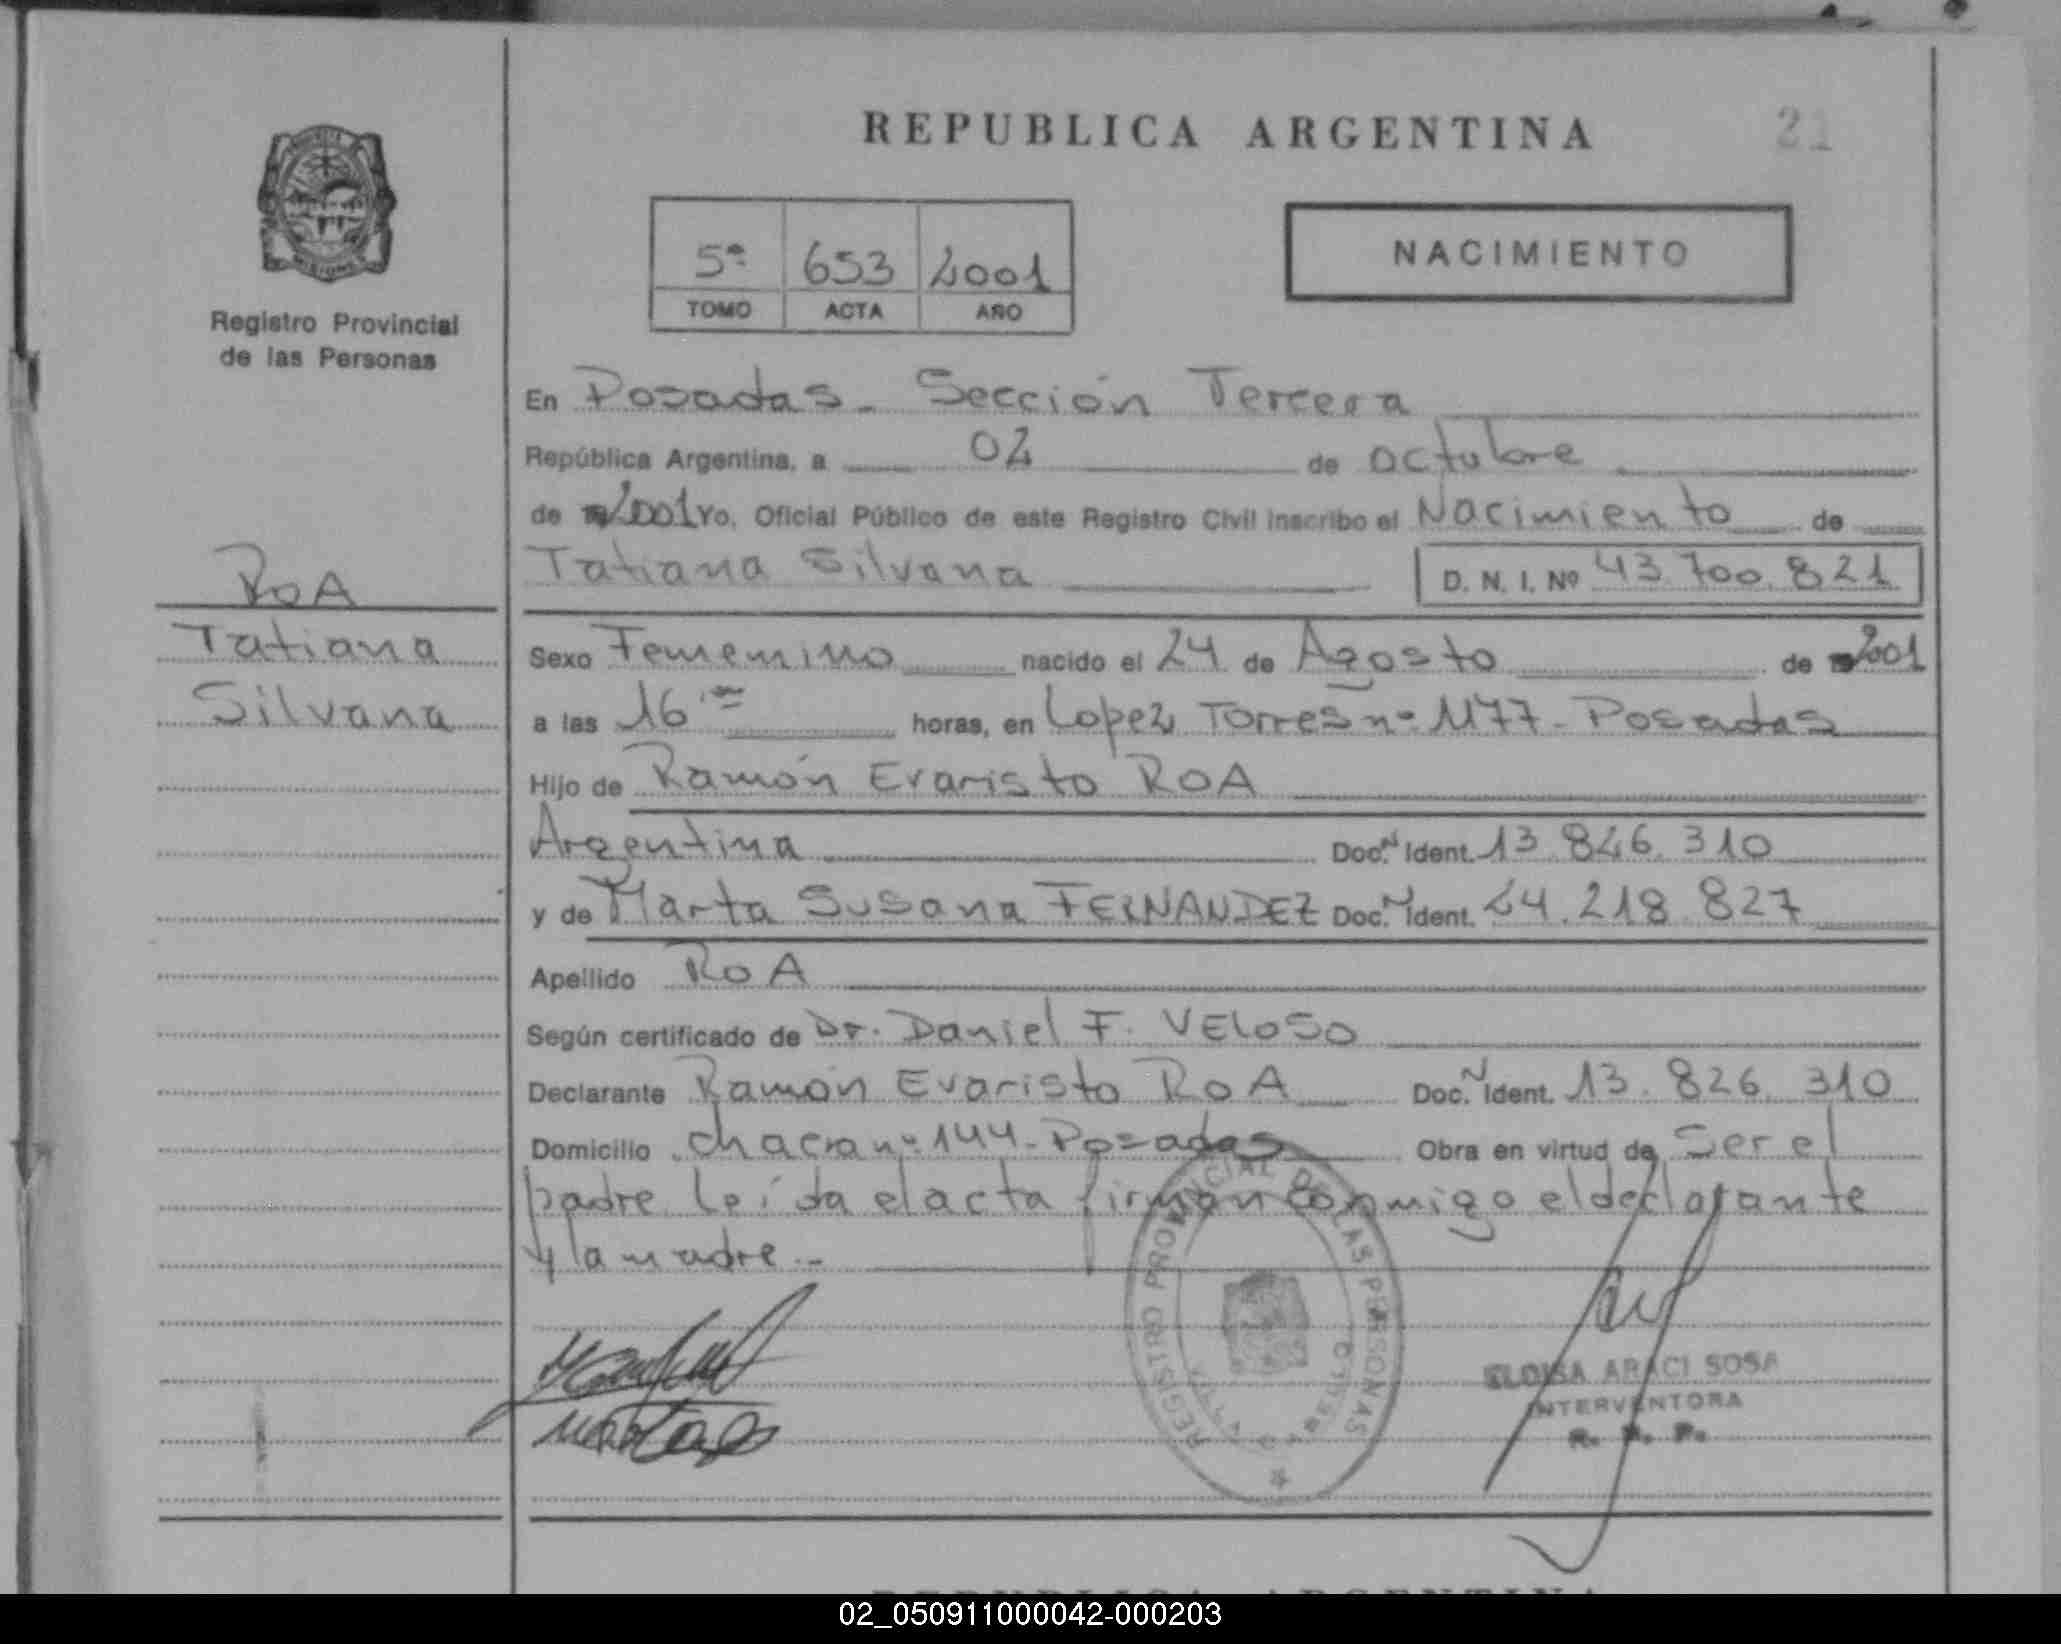 REPUBLICA ARGENTINA
21
MISIONES
Registro Provincial
de las Personas
5ª 653 2001
TOMO ACTA AÑO
NACIMIENTO
En Posadas - Sección Tercera
República Argentina, a 02 de octubre
de 2001 Yo, Oficial Público de este Registro Civil inscribo el Nacimiento de
Tatiana Silvana D. N. I. Nº 43.700.821
ROA
Tatiana
Silvana
Sexo Femenino nacido el 24 de Agosto de 2001
a las 16 horas, en Lopez Torres nº 1177 - Posadas
Hijo de Ramón Evaristo ROA
Argentina Doc. N Ident. 13.826.310
y de Marta Susana FERNANDEZ Doc. N Ident. 24.218.827
Apellido ROA
Según certificado de Dr. Daniel F. VELOSO
Declarante Ramón Evaristo ROA Doc. N Ident. 13.826.310
Domicilio chacra nº 144 - Posadas Obra en virtud de Ser el
padre leída el acta firman conmigo el declarante
y la madre.-
REGISTRO PROVINCIAL DE LAS PERSONAS
ELOISA ARACI SOSA
INTERVENTORA
R. P. P.
REPUBLICA ARGENTINA
02_050911000042-000203